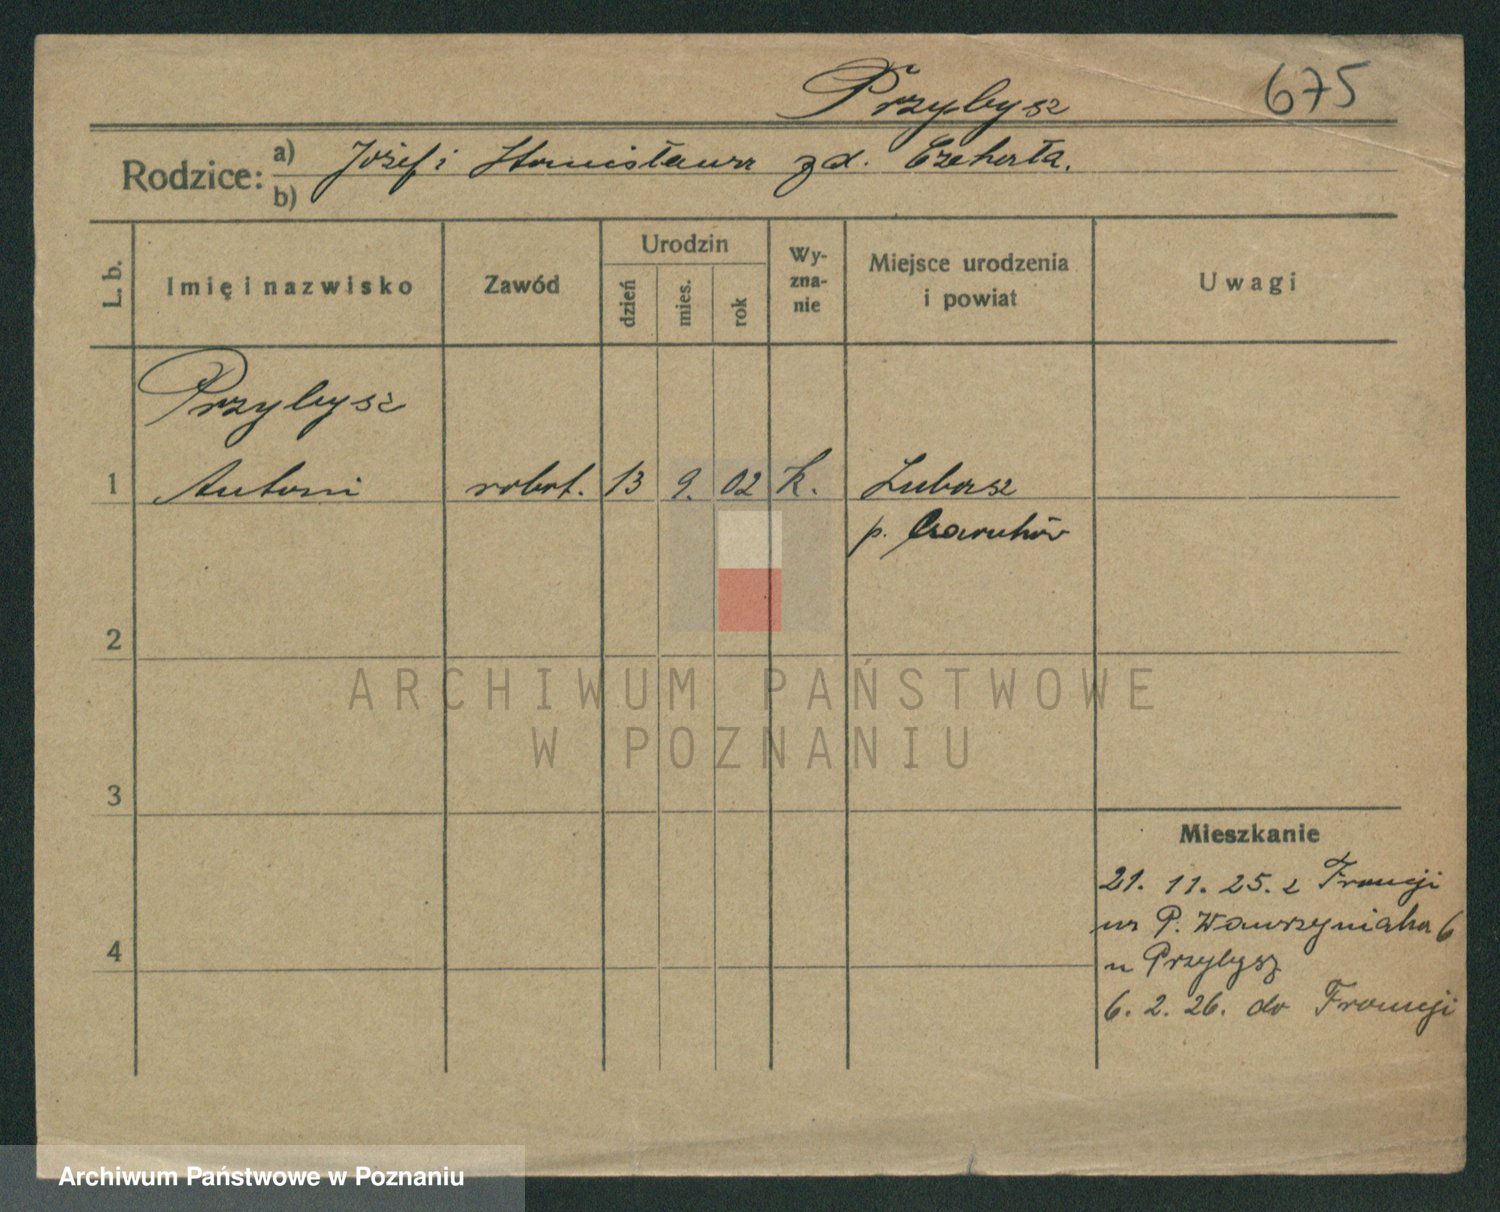 Przybysz
675
Rodzice:
a) Józef i Stanisława zd. Czekała.
b)
L. b.
Imię i nazwisko
Zawód
Urodzin
dzień
mies.
rok
Wy-
zna-
nie
Miejsce urodzenia
i powiat
Uwagi
Przybysz
1 Antoni robot. 13 9. 02 k. Lubasz
p. Czarnków
2
3
4
Mieszkanie
21. 11. 25. z Francji
na P. Wawrzyniaka 6
u Przybysz
6. 2. 26. do Francji
ARCHIWUM PAŃSTWOWE
W POZNANIU
Archiwum Państwowe w Poznaniu